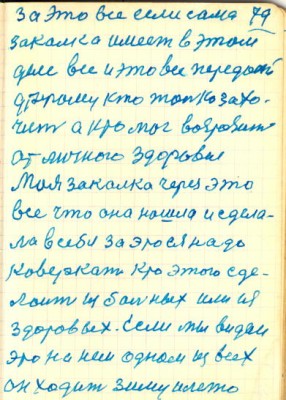 за это все если сама 79
закалка имеет в этом
деле все и это все передаст
другому кто только захо-
чит а кто мог возразит
от личного здоровье
Моя закалка через это
все что она нашла и сдела-
ла в себя за это ея надо
коверкать кто этого сде-
лоит из больных или из
здоровых. если мы видем
это на нем одном из всех
он ходит зиму и лето